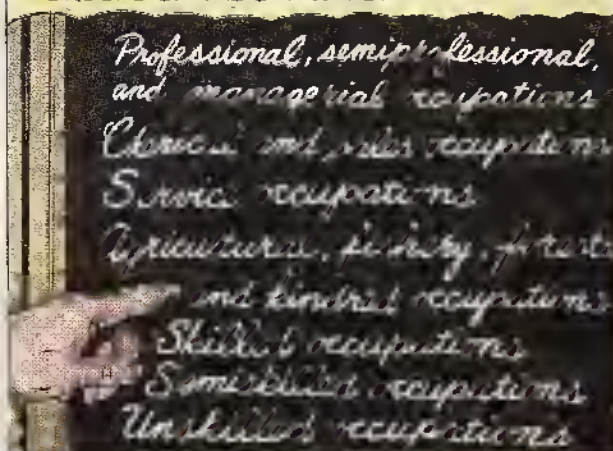 Professional, semiprofessional,
and managerial occupations
Clerical and sales occupations
Service occupations
Agricultural, fishery, forest
and kindred occupations
Skilled occupations
Semiskilled occupations
Unskilled occupations